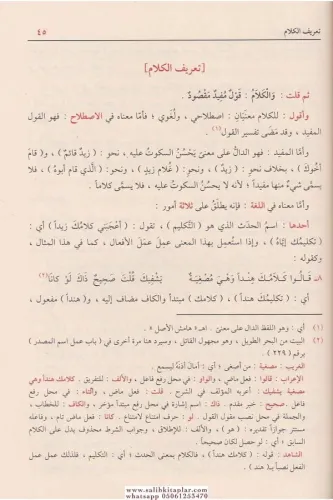 تعريف الكلام
٤٥
[تعريف الكلام]
ثم قلت : وَالْكَلَامُ : قَوْلٌ مُفِيدٌ مَقْصُودٌ .
وأقول : للكلام معنَيَان : اصطلاحي ، ولُغَوي ؛ فأمّا معناه في الاصطلاح : فهو القول
المفيد ، وقد مَضَى تفسير القول(١) .
وأمّا المفيد : فهو الدالُّ على معنىً يَحْسُنُ السكوتُ عليه ، نحو : ( زيدٌ قائمٌ ) ، و( قامَ
أخوكَ ) ، بخلاف نحو : ( زيدٌ ) ، ونحو : ( غُلامِ زيدٍ ) ، ونحو : ( الَّذي قامَ أبوهُ ) ، فلا
يسمَّى شيءٌ منها مفيداً ؛ لأنه لا يحسُنُ السكوتُ عليه ، فلا يسمَّى كلاماً .
وأمّا معناه في اللغة : فإنه يطلَقُ على ثلاثة أمور :
أحدها : اسمُ الحدَثِ الذي هو ( التكليم ) ، تقول : ( أعْجَبَني كلامُكَ زيداً ) أي :
( تكليمُكَ إيَّاهُ ) ، وإذا استُعمِل بهذا المعنى عمِلَ عمَلَ الأفعال ، كما في هذا المثال ،
وكقوله :
٨ـ قَالُوا كَلَامُكَ هِنْداً وَهْيَ مُصْغِيَةٌ يَشْفِيكَ قُلْتُ صَحِيحٌ ذَاكَ لَوْ كَانَا(٢)
أي : ( تكليمُكَ هنداً ) ، ( كلامك ) مبتدأ والكاف مضاف إليه ، و( هنداً ) مفعول ،
(١) أي : وهو اللفظ الدال على معنىً . اهـ « هامش الأصل » .
(٢) البيت من البحر ، وهو مجهول القائل ، وسيرد هنا مرة أخرى في ( باب عمل اسم المصدر )
برقم ( ٢٢٩ ) .
الغريب : مصغية : من أصغى ؛ أي : أمالَ أذنَهُ ليسمع .
الإعراب : قالوا : فعل ماض ، والواو : في محل رفع فاعل ، والألف : للتفريق . كلامك هنداً وهي
مصغية يشفيك : أعربه المؤلف في الشرح . قلت : فعل ماض ، والتاء : في محل رفع
فاعل . صحيح : خبر مقدم . ذاك : اسم إشارة في محل رفع مبتدأ مؤخر ، والكاف : للخطاب ،
والجملة في محل نصب مقول القول . لو : حرف امتناع لامتناع . كانا : فعل ماض تام ، وفاعله
مستتر جوازاً تقديره : ( هو ) ، والألف : للإطلاق ، وجواب الشرط محذوف يدل على الكلام
السابق ؛ أي : لو حصل لكان صحيحاً .
الشاهد : قوله : ( كلامك هنداً ) ، فالكلام بمعنى الحدث ؛ أي : التكليم ، فلذلك عمل عمل
الفعل نصباً لـ( هند ) .
www.salihkitaplar.com
whatsapp 05061255470